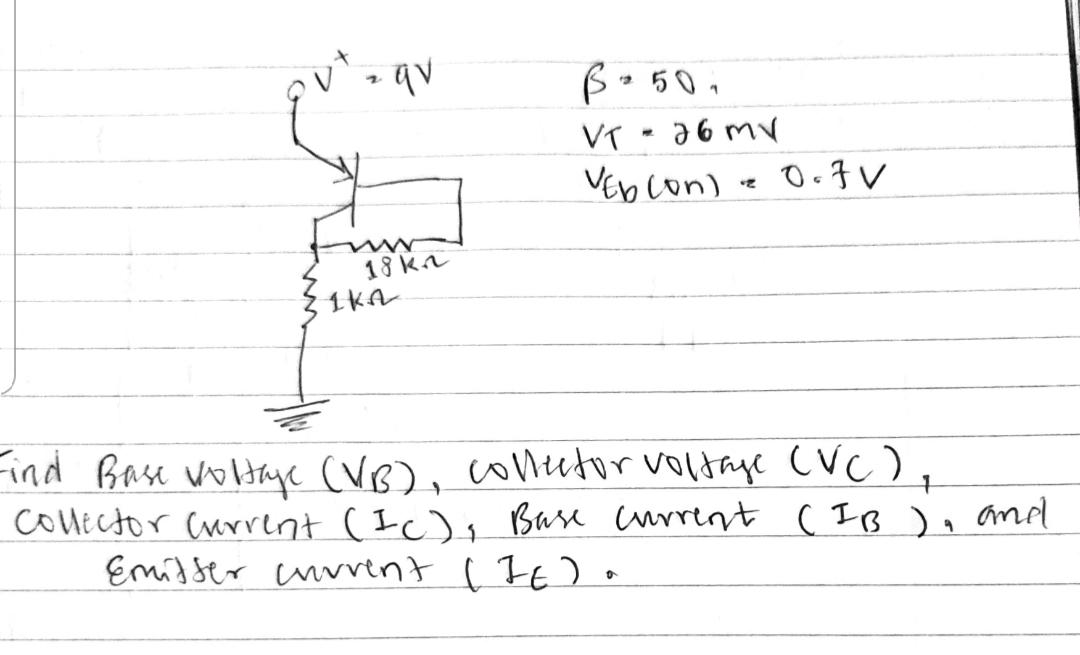 V⁺ = 9V
β = 50,
VT = 26 mV
VEb (on) = 0.7V
18 kΩ
1 kΩ
Find Base voltage (VB), collector voltage (VC),
collector current (IC), Base current (IB), and
Emitter current (IE).